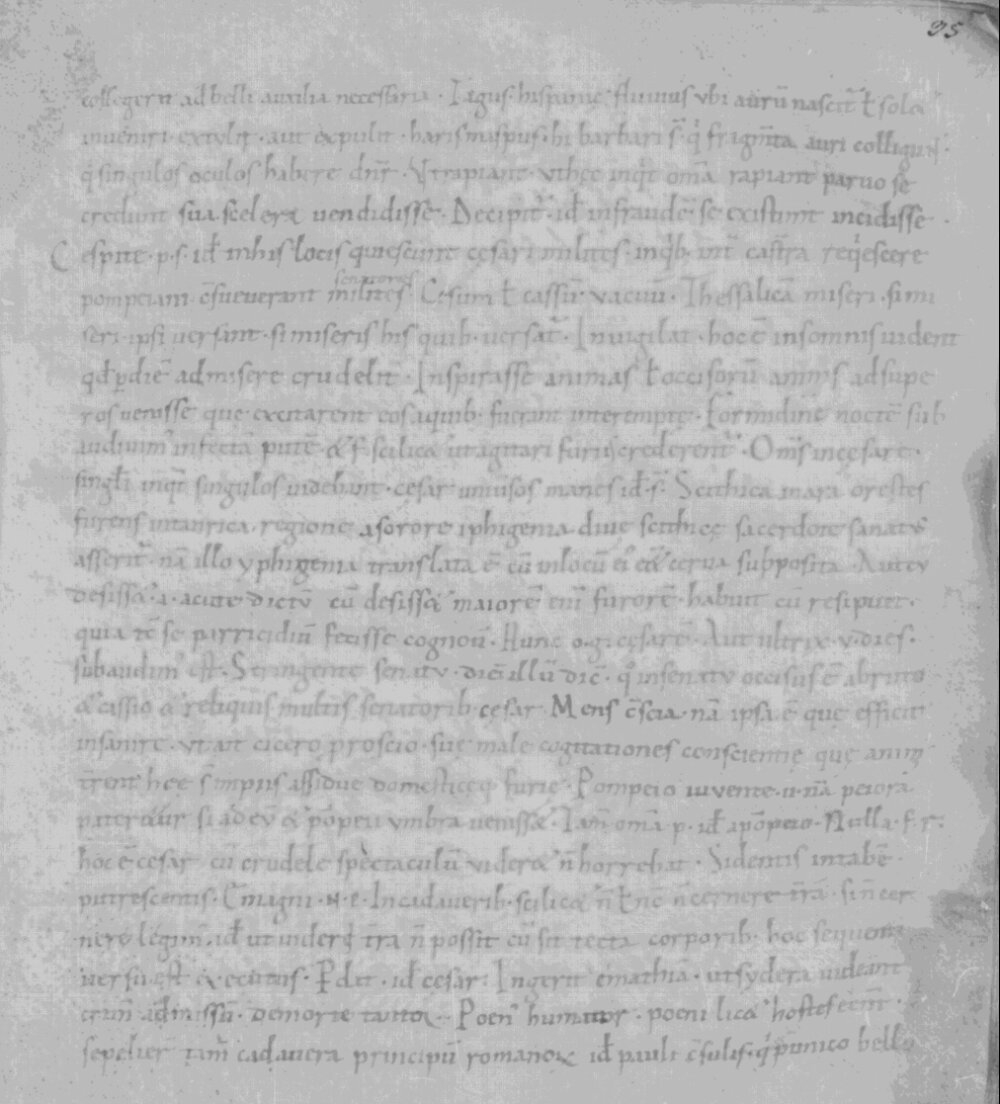 95
colligerit ad belli auxilia necessaria · Tagus · hispanie fluuius vbi aurū nascit᷑ ł sola
inueniri extulit · aut expulit · harismaspus · hi barbari s̄ q̇ frigm̄ta auri colligunt ·
q̇ singulos oculos habere dn̄r · Vtrapiant · vthec inqt om̄a rapiant paruo se
credunt sua scelera uendidisse · Decipit᷑ · id̄ infraudē se existimt incidisse ·
Cespite · p · s · id̄ inhis locis quiescunt cesaris milites · inqb · int̄ castra reqescere
senatores
pompeiani c̄sueuerant milites · Cesum ł cassū · vacuū · Thessalicā miseri · si mi
seri · ipsi uersant · si miseris his quib · uersat᷑ · Inuigilat · hoc ē insomnis uident
qd̄ p̱diē admisere crudelit᷑ · Inspirasse animas ł occisorū animis adsupe
ros uenisse que excitarent eos aquib · fuerant interempte · Formidinē noctē sub
audium᷑ infectā putē · & s · scilic& utagitari furiis crederent᷑ · Oms incesare ·
singłi inqt singulos uidebant · cesar uniuersos manes id̄ · s · Scithica mara orestes
furens intaurica · regione asorore iphigenia diue scithice sacerdote sanatū
asserit᷑ · nā illo yphigenia translata ē cū inlocū ei᷑ e&̄ cerua subposita · Autcū
desiss& · i · acute dictū cū desiss& maiorē eni᷑ furorē · habuit cū resipuit ·
quia tc̄ se parricidiū fecisse cognouit · Hunc o · gi cesarē · Aut ultrix · v · dies ·
subaudim᷑ est · Stringente senatu · diē illū dic̄ · q̇ insenatu occisus ē abruto
& cassio & reliquis multis senatorib · cesar · Mens c̄scia · nā ipsa ē que efficit
insanire · vt ait cicero proscio · sue male cogitationes conscientie que animi
trent hec s̄ impiis assidue domestice q; furie · Pompeio uiuente · u · nā peiora
pateret᷑ si ad eū & pōpeii vmbra ueniss& · Tam om̄a p · id̄ apōpeio · Nulla · f · r ·
hoc ē cesar cū crudele spectaculū vider& n̄ horrebat · Sidentis intabē ·
putrescentis · C̄ magni · n · e · Incadauerib · scilic& n̄ ł nc̄ n̄ cernere trā · sin̄ cer
nere legim᷑ · id̄ ut uider& trā n̄ possit cū sit tecta corporib · hoc sequenti
uersu est executus · Pdit · id̄ cesar · Ingerit emathiā · ut sydera uideant
crim̄ admissū · demorte tantoꝝ · Poen᷑ humator · poeni lic& hostes eent ·
sepelier̄ tam̄ cadauera principū romanoꝝ id̄ pauli c̄sulis · q̇ punico bello